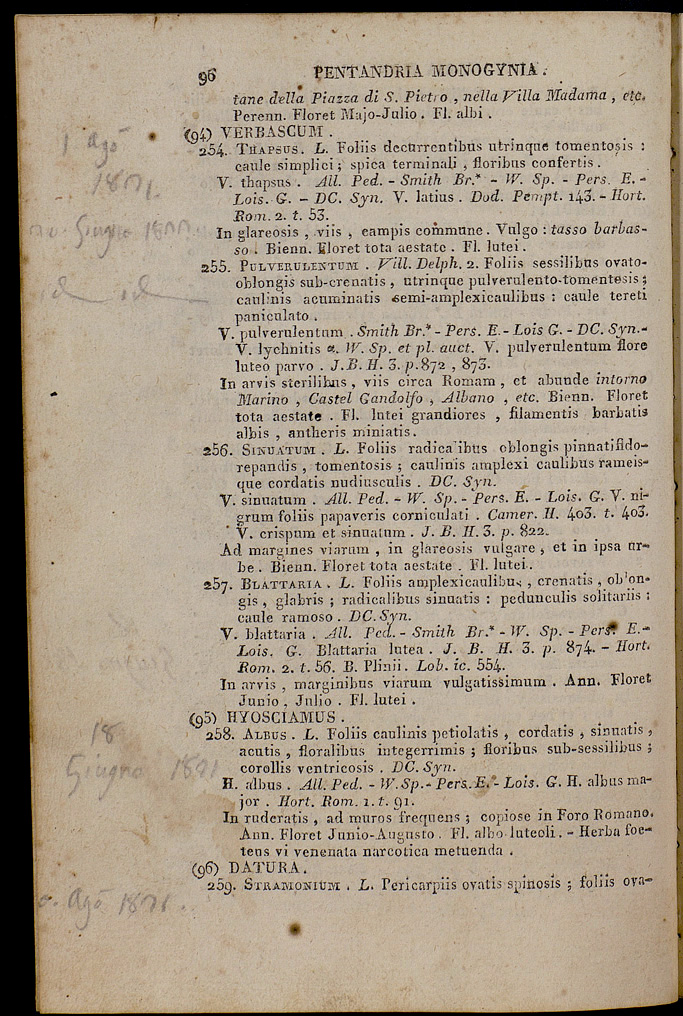 96 PENTANDRIA MONOGYNIA.
tane della Piazza di S. Pietro , nella Villa Madama , etc.
Perenn. Floret Majo-Julio . Fl. albi .
(94) VERBASCUM .
254. THAPSUS. L. Foliis decurrentibus utrinque tomentosis :
caule simplici ; spica terminali , floribus confertis .
V. thapsus . All. Ped. - Smith Br.* - W. Sp. - Pers. E. -
Lois. G. - DC. Syn. V. latius . Dod. Pempt. 143. - Hort.
Rom. 2. t. 53.
In glareosis , viis , campis commune. Vulgo : tasso barbas-
so . Bienn. Floret tota aestate . Fl. lutei .
255. PULVERULENTUM . Vill. Delph. 2. Foliis sessilibus ovato-
oblongis sub-crenatis , utrinque pulverulento-tomentosis ;
caulinis acuminatis semi-amplexicaulibus : caule tereti
paniculato .
V. pulverulentum . Smith Br.* - Pers. E. - Lois G. - DC. Syn. -
V. lychnitis α. W. Sp. et pl. auct. V. pulverulentum flore
luteo parvo . J. B. H. 3. p. 872 , 873.
In arvis sterilibus , viis circa Romam , et abunde intorno
Marino , Castel Gandolfo , Albano , etc. Bienn. Floret
tota aestate . Fl. lutei grandiores , filamentis barbatis
albis , antheris miniatis .
256. SINUATUM . L. Foliis radicalibus oblongis pinnatifido-
repandis , tomentosis ; caulinis amplexi caulibus rameis-
que cordatis nudiusculis . DC. Syn.
V. sinuatum . All. Ped. - W. Sp. - Pers. E. - Lois. G. V. ni-
grum foliis papaveris corniculati . Camer. H. 403. t. 403.
V. crispum et sinuatum . J. B. H. 3. p. 822.
Ad margines viarum , in glareosis vulgare , et in ipsa ur-
be . Bienn. Floret tota aestate . Fl. lutei .
257. BLATTARIA . L. Foliis amplexicaulibus , crenatis , oblon-
gis , glabris ; radicalibus sinuatis : pedunculis solitariis :
caule ramoso . DC. Syn.
V. blattaria . All. Ped. - Smith Br.* - W. Sp. - Pers. E. -
Lois. G. Blattaria lutea . J. B. H. 3. p. 874. - Hort.
Rom. 2. t. 56. B. Plinii. Lob. ic. 554.
In arvis , marginibus viarum vulgatissimum . Ann. Floret
Junio , Julio . Fl. lutei .
(95) HYOSCIAMUS .
258. ALBUS . L. Foliis caulinis petiolatis , cordatis , sinuatis ,
acutis , floralibus integerrimis ; floribus sub-sessilibus ;
corollis ventricosis . DC. Syn.
H. albus . All. Ped. - W. Sp. - Pers. E. - Lois. G. H. albus ma-
jor . Hort. Rom. 1. t. 91.
In ruderatis , ad muros frequens ; copiose in Foro Romano.
Ann. Floret Junio-Augusto . Fl. albo-luteoli . - Herba foe-
tens vi venenata narcotica metuenda .
(96) DATURA .
259. STRAMONIUM . L. Pericarpiis ovatis spinosis ; foliis ova-
1 Agō
1871.
Giugno
id id
18
Giugno 1871
Agō 1871.